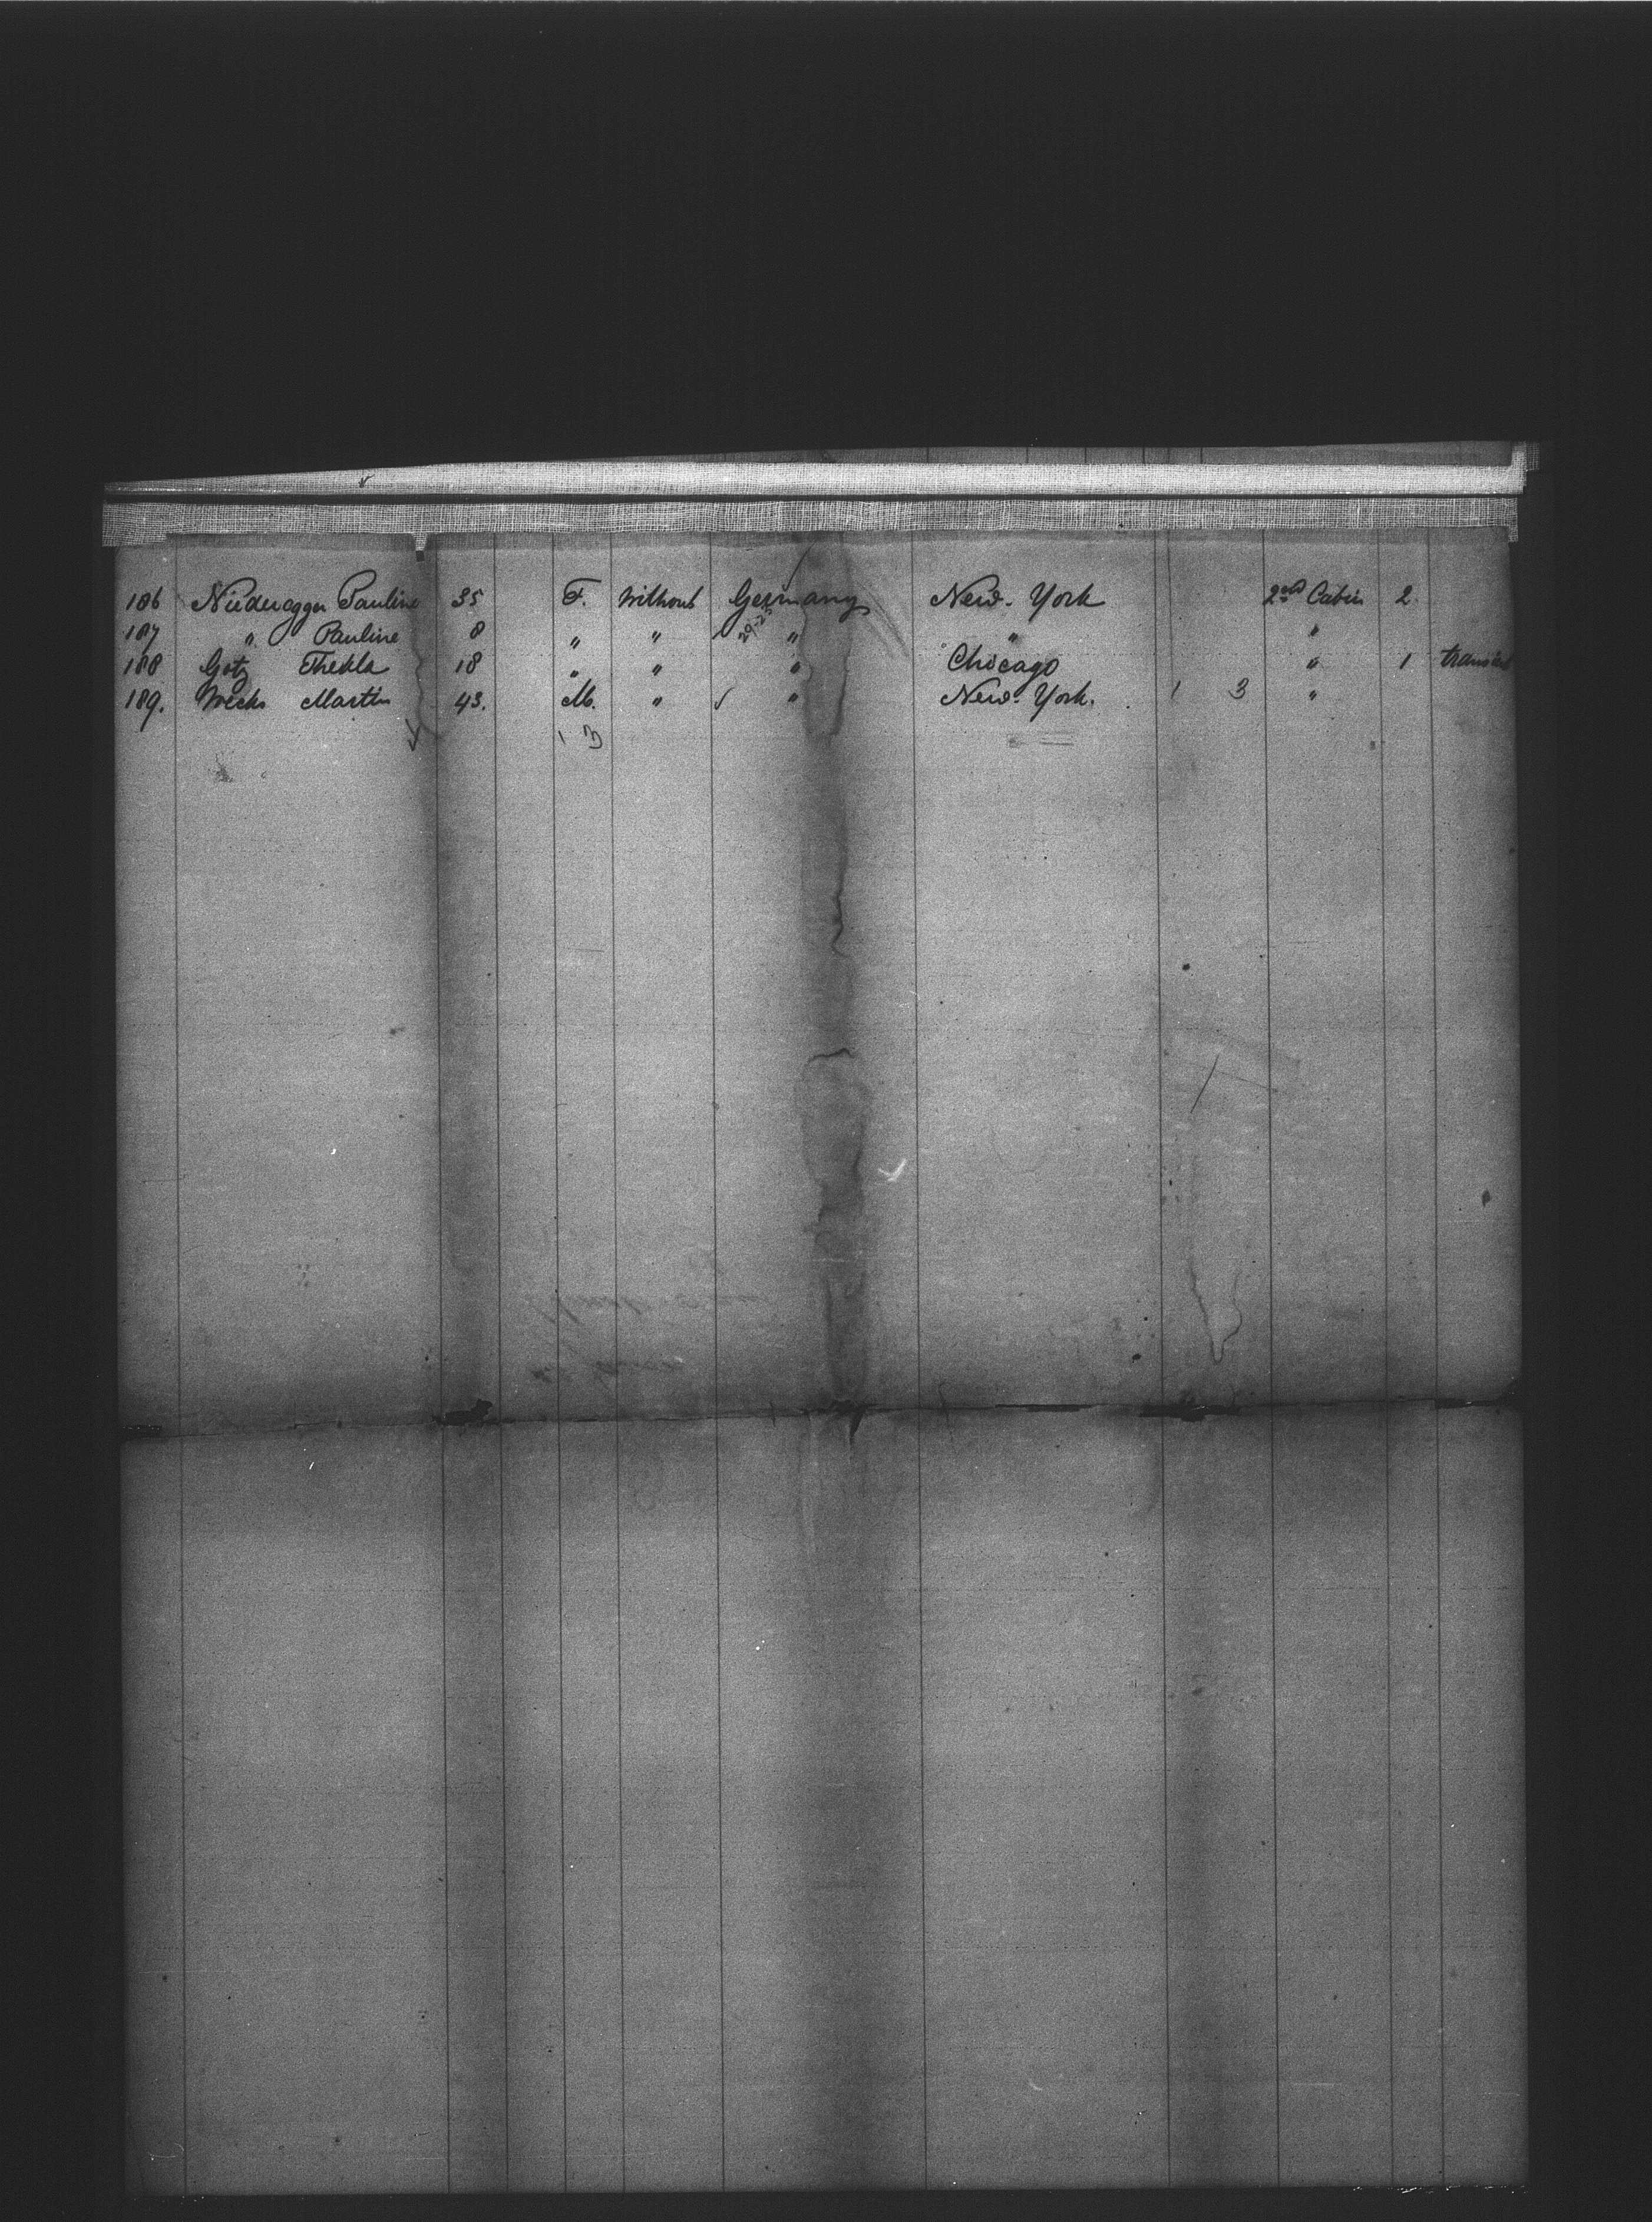 186 Niederegger Pauline 35 F. Without Germany New-York 2nd Cabin 2.
187 " Pauline 8 " " 29-25 " " "
188 Götz Thekla 18 " " " Chicago " 1 transient
189. Martin 43. M. " " New-York. 1 3 "
1 3